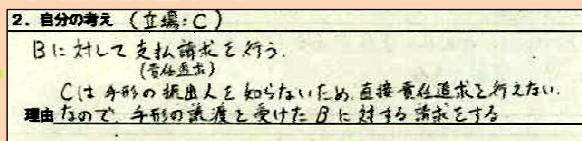 2. 自分の考え (立場: C)
Bに対して支払請求を行う.
(責任追求)
Cは手形の振出人を知らないため, 直接責任追求を行えない.
理由 なので, 手形の譲渡を受けたBに対する請求をする